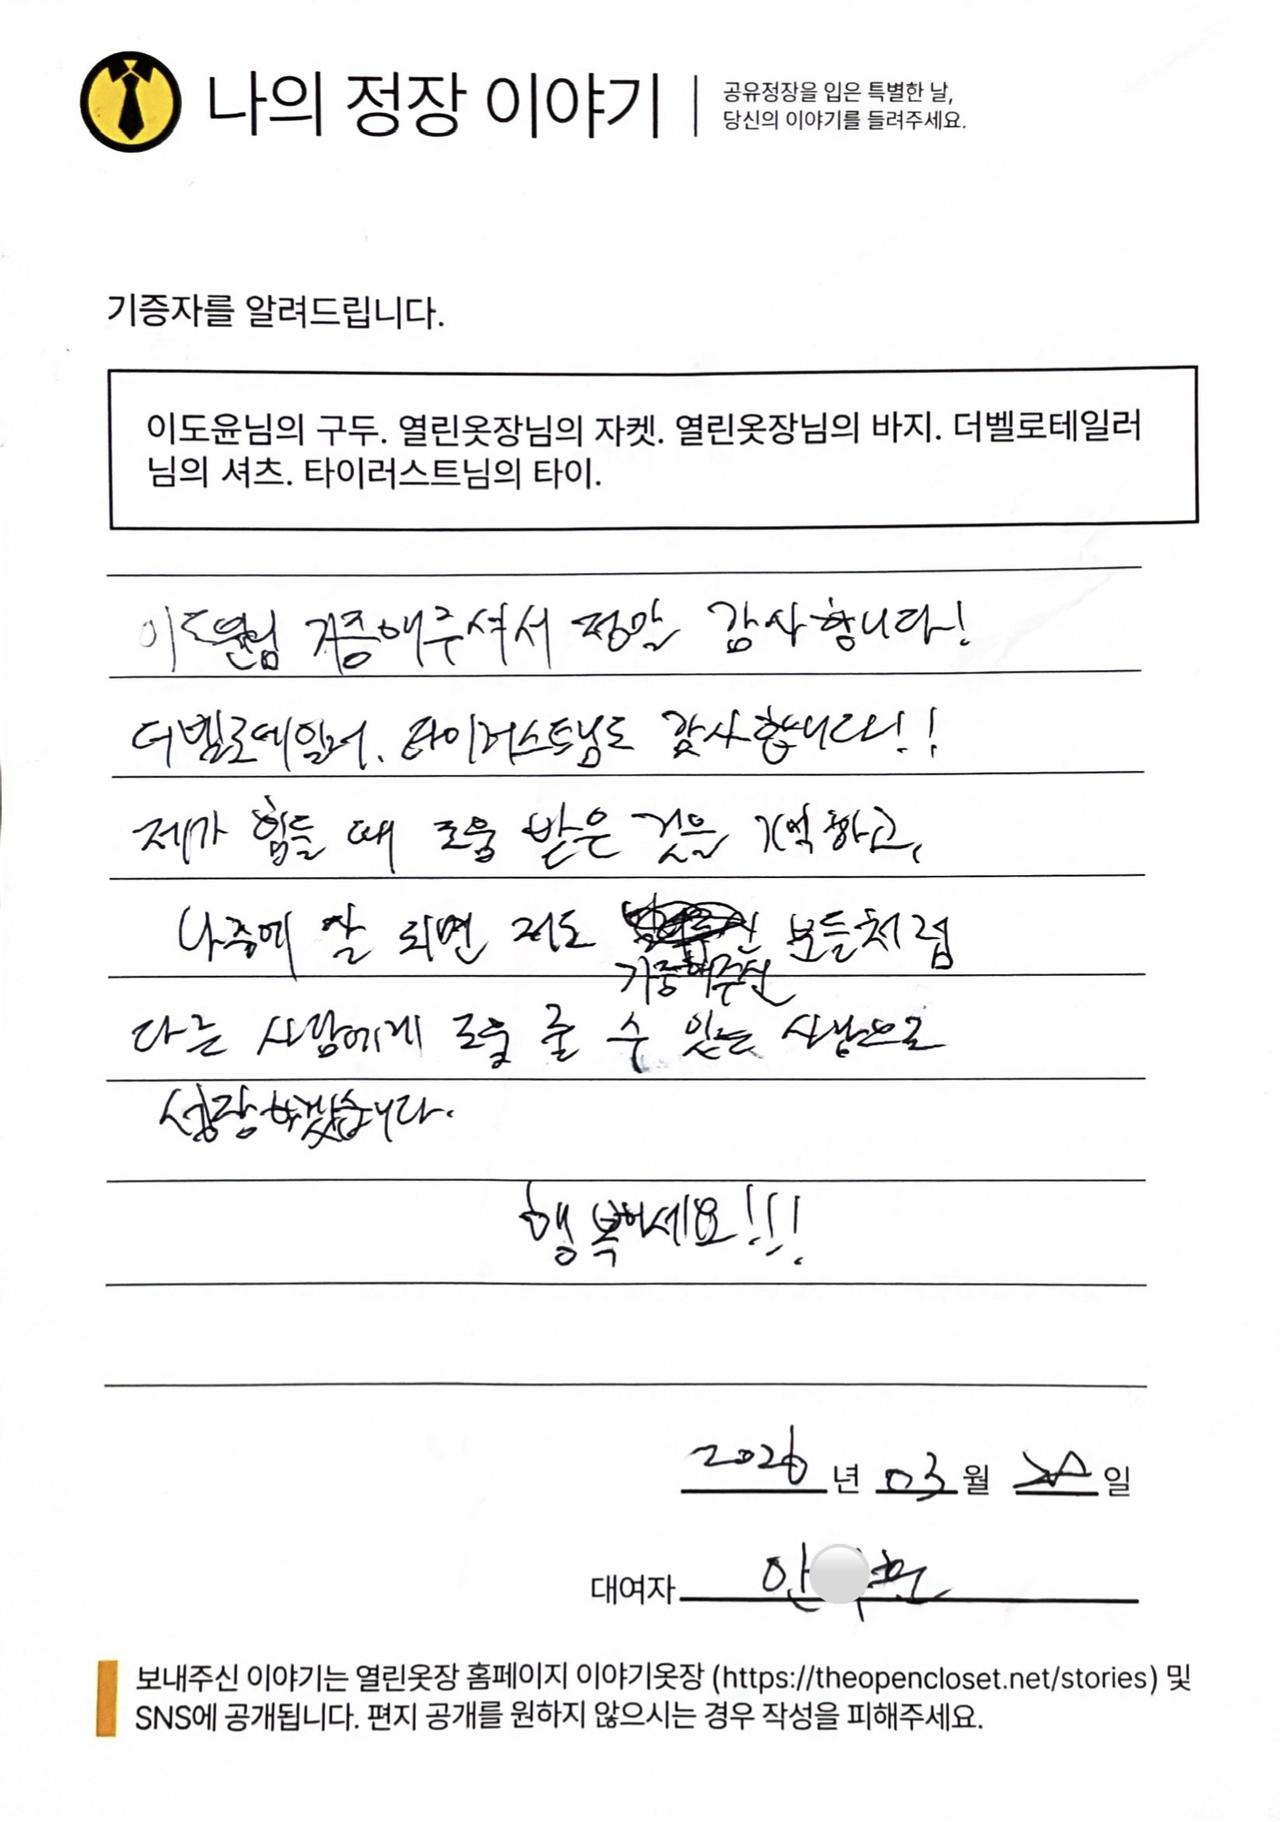 나의 정장 이야기
공유정장을 입은 특별한 날,
당신의 이야기를 들려주세요.
기증자를 알려드립니다.
이도윤님의 구두. 열린옷장님의 자켓. 열린옷장님의 바지. 더벨로테일러
님의 셔츠. 타이러스트님의 타이.
이도윤님 기증해주셔서 정말 감사합니다!
더벨로테일러, 타이러스트님도 감사합니다!!
제가 힘들 때 도움 받은 것을 기억하고,
나중에 잘 되면 저도 분들처럼
기증해주신
다른 사람에게 도움 줄 수 있는 사람으로
성장하겠습니다.
행복하세요!!!
2026 년 03 월 일
대여자 안
보내주신 이야기는 열린옷장 홈페이지 이야기옷장 (https://theopencloset.net/stories) 및
SNS에 공개됩니다. 편지 공개를 원하지 않으시는 경우 작성을 피해주세요.